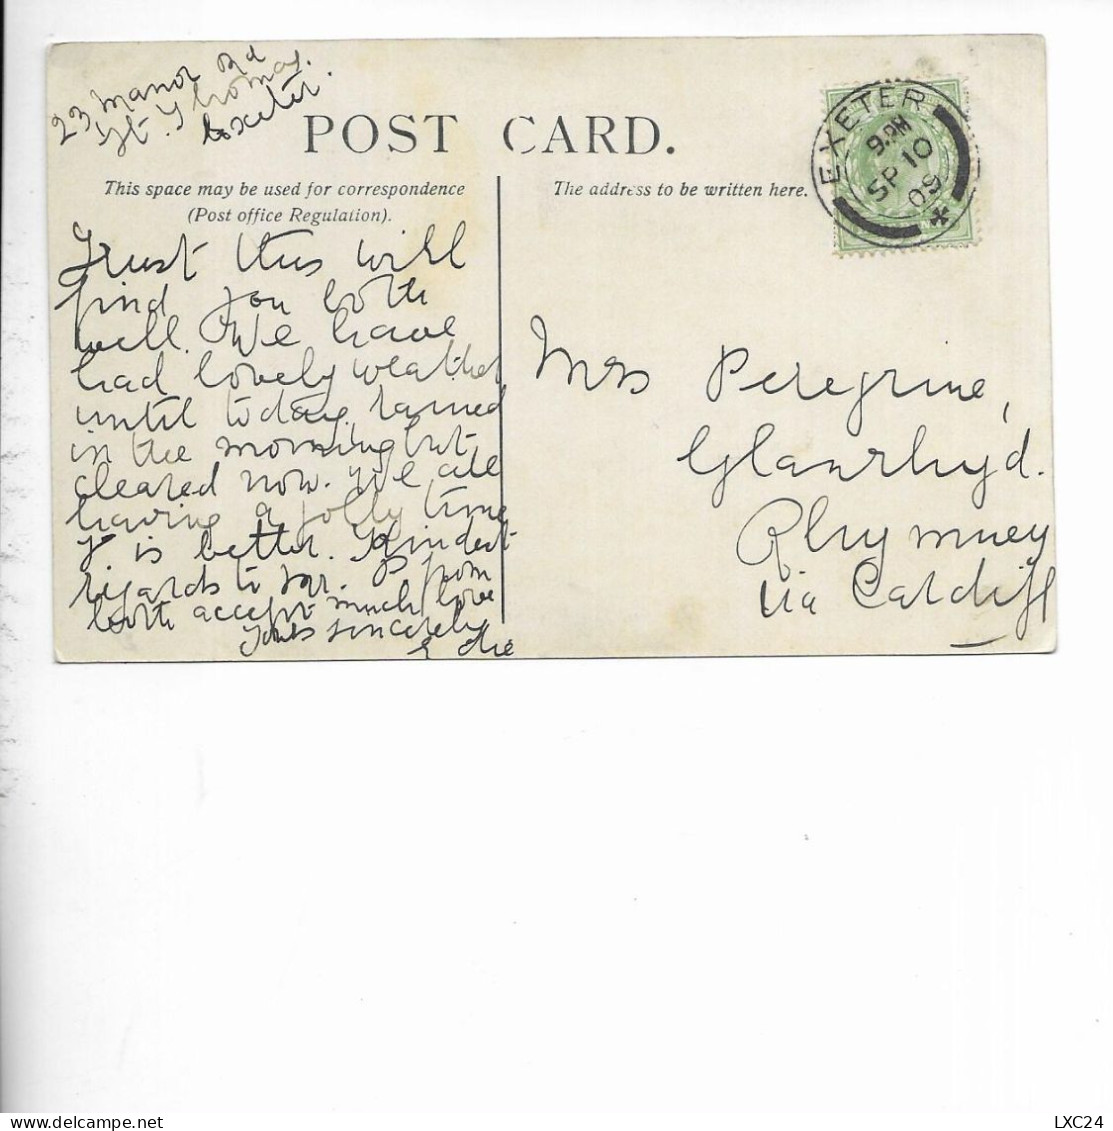 23 Manor Rd
St. Thomas.
Exeter.
POST CARD.
This space may be used for correspondence
(Post office Regulation).
The address to be written here.
EXETER
9.PM
SP 10
09
Trust this will
find you both
well. We have
had lovely weather
until today, rained
in the morning but
cleared now. We are
having a jolly time
is better. Kindest
regards to Mr. P from
both accept much love
Yours sincerely
Edie
Mrs Peregrine,
Glanrhyd.
Rhymney
Via Cardiff
LXC24